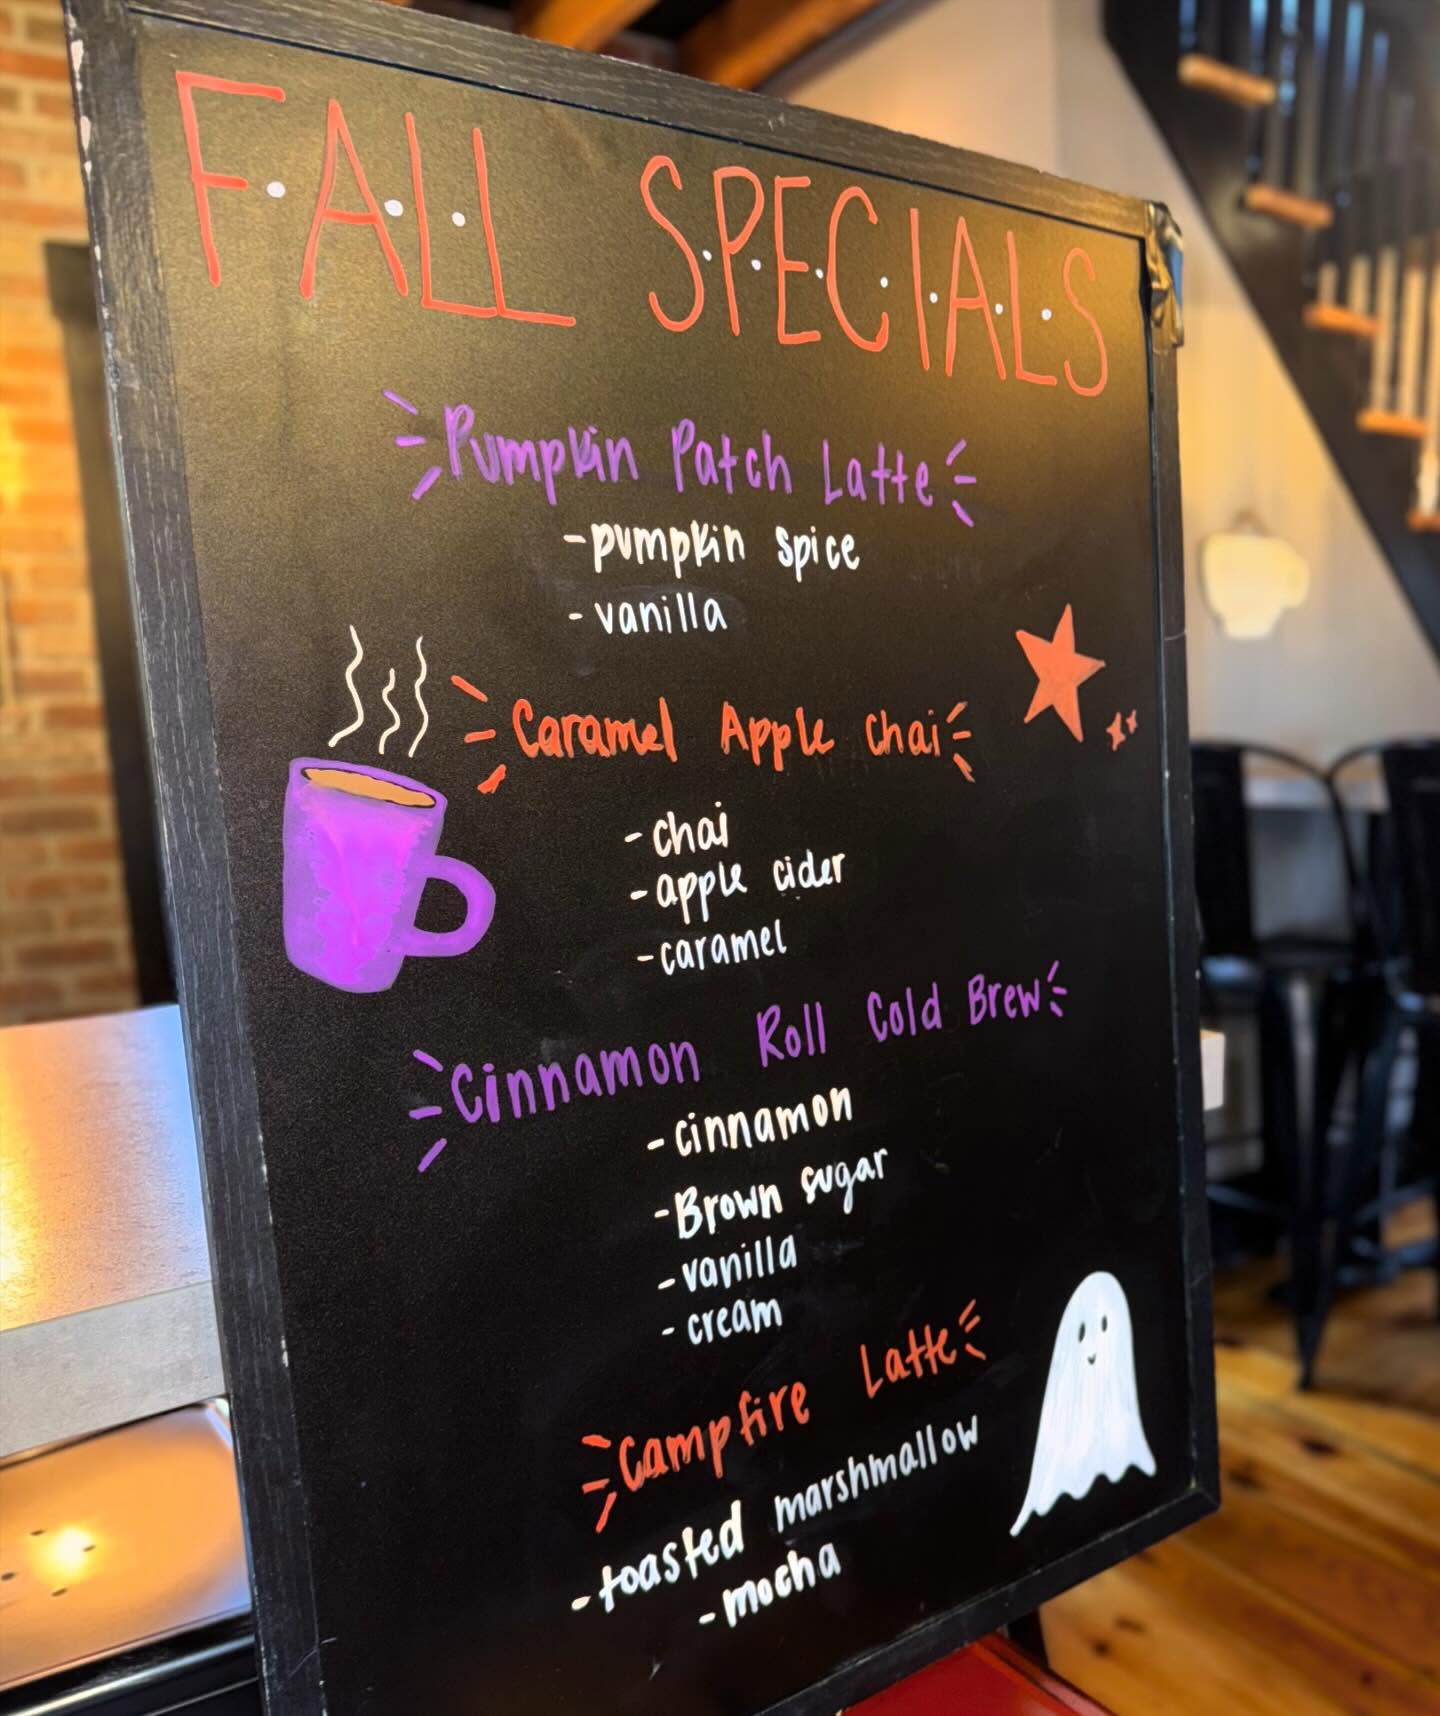 F·A·L·L S·P·E·C·I·A·L·S
Pumpkin Patch Latte
-pumpkin spice
-vanilla
Caramel Apple Chai
-chai
-apple cider
-caramel
Cinnamon Roll Cold Brew
-cinnamon
-Brown sugar
-vanilla
-cream
Campfire Latte
-toasted marshmallow
-mocha